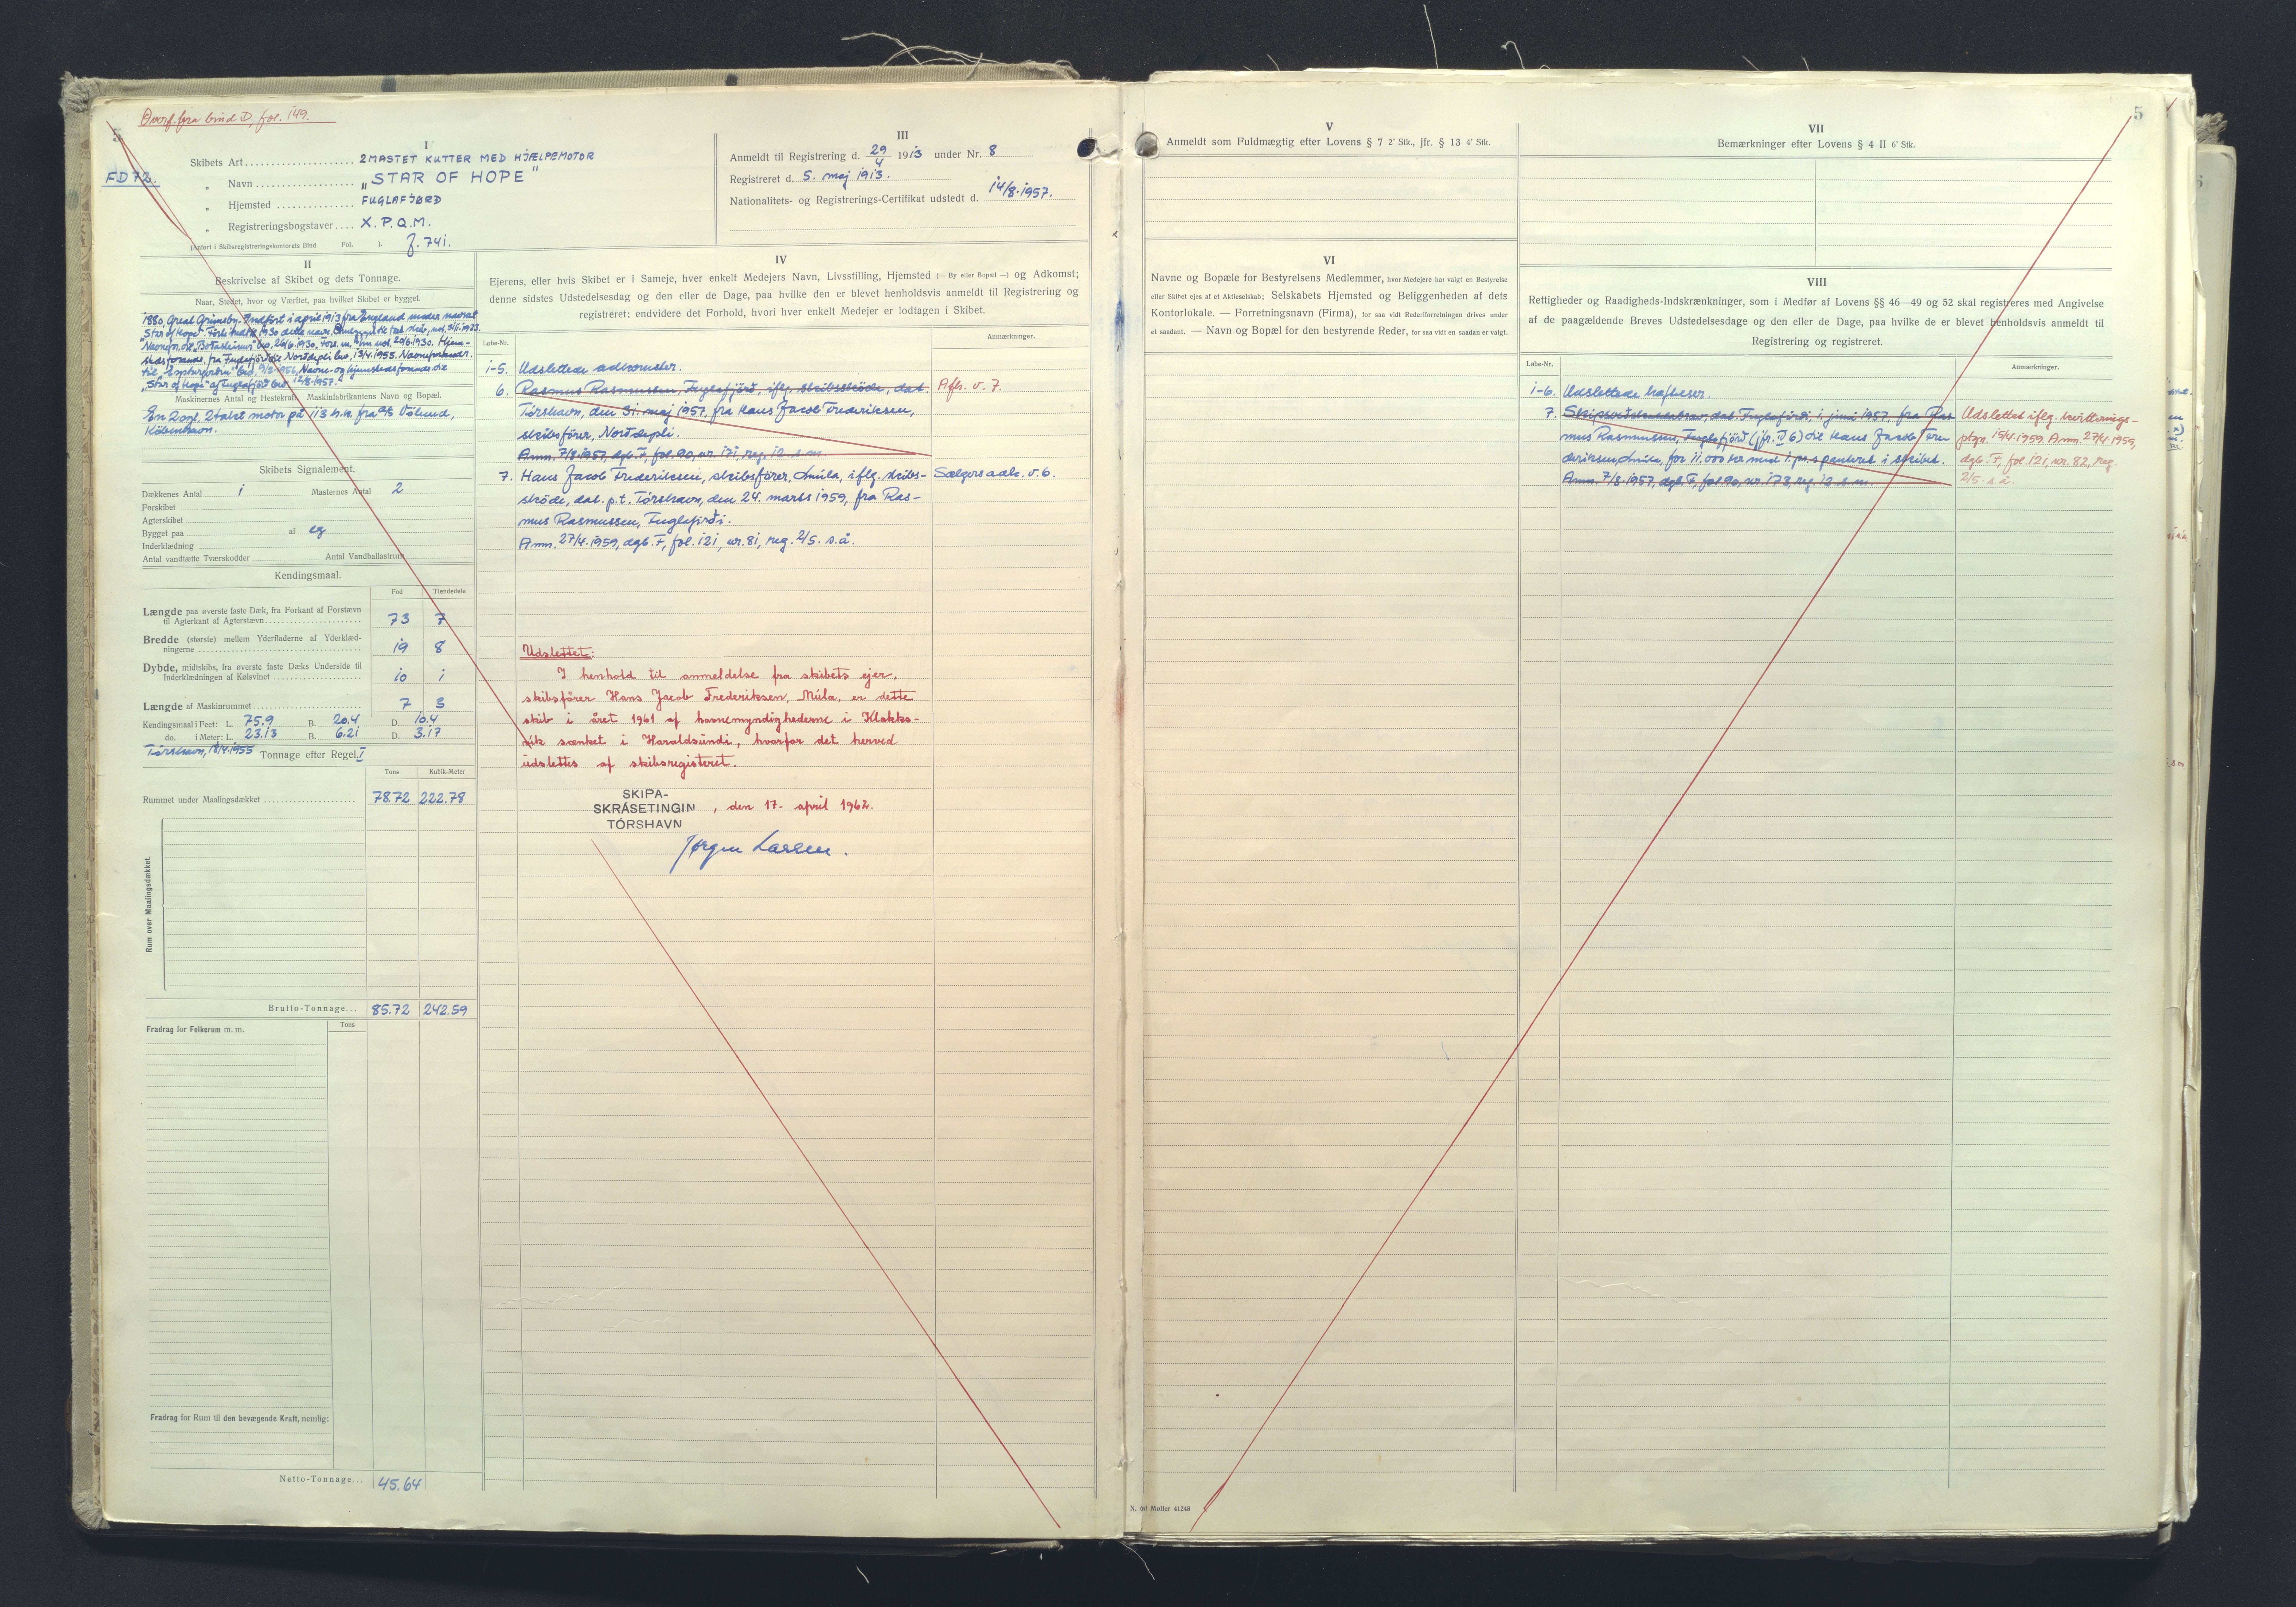 Overf. fra bind D, fol. 149.
5
FD 72.
I
Skibets Art 2MASTET KUTTER MED HJÆLPEMOTOR
" Navn „STAR OF HOPE"
" Hjemsted FUGLAFJØRD
" Registreringsbogstaver X.P.Q.M.
(Anført i Skibsregistreringskontorets Bind Fol. ). J. 741.
III
Anmeldt til Registrering d. 29/4 1913 under Nr. 8
Registreret d. 5. maj 1913.
Nationalitets- og Registrerings-Certifikat udstedt d. 14/8.1957.
II
Beskrivelse af Skibet og dets Tonnage.
Naar, Stedet, hvor og Værftet, paa hvilket Skibet er bygget.
1880, Great Grimsby. Indført i april 1913 fra England under navnet
"Star of Hope". Førte indtil 1930 dette navn.
Navnefor. til 26/6.1930. 20/6 1930. Hjem-
stedsforandr. fra Fuglefjörd til Norddepli 13/4.1955. Navneforandr.
til 9/2.1956, Navne- og hjemstedsforandr. til
„Star of Hope" af Fuglefjörd 12/8.1957.
Maskinernes Antal og Hestekraft, Maskinfabrikantens Navn og Bopæl.
En 2 cyl. 2 takt motor på 113 h.k. fra A/S Völund,
København.
Skibets Signalement.
Dækkenes Antal 1 Masternes Antal 2
Forskibet
Agterskibet
Bygget paa af eg
Inderklædning
Antal vandtætte Tværskodder Antal Vandballastrum
Kendingsmaal.
Fod Tiendedele
Længde paa øverste faste Dæk, fra Forkant af Forstævn
til Agterkant af Agterstævn 73 7
Bredde (største) mellem Yderfladerne af Yderklæd-
ningerne 19 8
Dybde, midtskibs, fra øverste faste Dæks Underside til
Inderklædningen af Kølsvinet 10 1
Længde af Maskinrummet 7 3
Kendingsmaal i Feet: L. 75.9 B. 20.4 D. 10.4
do. i Meter: L. 23.13 B. 6.21 D. 3.17
Tórshavn, 18/4.1955 Tonnage efter Regel I
Tons Kubik-Meter
Rummet under Maalingsdækket 78.72 222.78
Rum over Maalingsdækket.
Brutto-Tonnage... 85.72 242.59
Fradrag for Folkerum m. m. Tons
Fradrag for Rum til den bevægende Kraft, nemlig:
Netto-Tonnage... 45.64
IV
Ejerens, eller hvis Skibet er i Sameje, hver enkelt Medejers Navn, Livsstilling, Hjemsted (— By eller Bopæl —) og Adkomst;
denne sidstes Udstedelsesdag og den eller de Dage, paa hvilke den er blevet henholdsvis anmeldt til Registrering og
registreret; endvidere det Forhold, hvori hver enkelt Medejer er lodtagen i Skibet.
Løbe-Nr. Anmærkninger.
1-5. Udslettede adkomster.
6. Rasmus Rasmussen, Fuglafjörð, iflg. skibsskøde, dat. Afh. v. 7.
Tórshavn, den 31. maj 1957, fra Hans Jacob Frederiksen,
skibsfører, Norddepli.
Anm. 7/8.1957, dgb. F, fol. 90, nr. 171, reg. 12. s.m.
7. Hans Jacob Frederiksen, skibsfører, Múla, iflg. skibs- Sælgers adk. v. 6.
skøde, dat. p.t. Tórshavn, den 24. marts 1959, fra Ras-
mus Rasmussen, Fuglafirði.
Anm. 27/4.1959, dgb. F, fol. 121, nr. 81, reg. 2/5. s.å.
Udslettet:
I henhold til anmeldelse fra skibets ejer,
skibsfører Hans Jacob Frederiksen, Múla, er dette
skib i året 1961 af havnemyndighederne i Klakks-
vík sænket i Haraldsundi, hvorfor det herved
udslettes af skibsregisteret.
SKIPA-
SKRÁSETINGIN
TÓRSHAVN
, den 17. april 1962.
Jørgen Larsen.
V
Anmeldt som Fuldmægtig efter Lovens § 7 2' Stk., jfr. § 13 4' Stk.
VI
Navne og Bopæle for Bestyrelsens Medlemmer, hvor Medejere har valgt en Bestyrelse
eller Skibet ejes af et Aktieselskab; Selskabets Hjemsted og Beliggenheden af dets
Kontorlokale. — Forretningsnavn (Firma), for saa vidt Rederiforretningen drives under
et saadant. — Navn og Bopæl for den bestyrende Reder, for saa vidt en saadan er valgt.
N. Møller 41248
VII
Bemærkninger efter Lovens § 4 II 6' Stk.
5
VIII
Rettigheder og Raadigheds-Indskrænkninger, som i Medfør af Lovens §§ 46—49 og 52 skal registreres med Angivelse
af de paagældende Breves Udstedelsesdage og den eller de Dage, paa hvilke de er blevet henholdsvis anmeldt til
Registrering og registreret.
Løbe-Nr. Anmærkninger.
1-6. Udslettede hæftelser.
7. Skipsveðskuldarbrev, dat. Fuglafirði, 1. juni 1957, fra Ras-
mus Rasmussen, Fuglafjörð (jfr. IV 6) til Hans Jacob Fre-
deriksen, Múla, for 11.000 kr. med 1. pr. panteret i skibet.
Anm. 7/8.1957, dgb. F, fol. 90, nr. 173, reg. 12. s.m.
Udslettet iflg. kvitterings-
ptgn. 15/4.1959. Anm. 27/4.1959,
dgb. F, fol. 121, nr. 82, reg.
2/5. s.å.